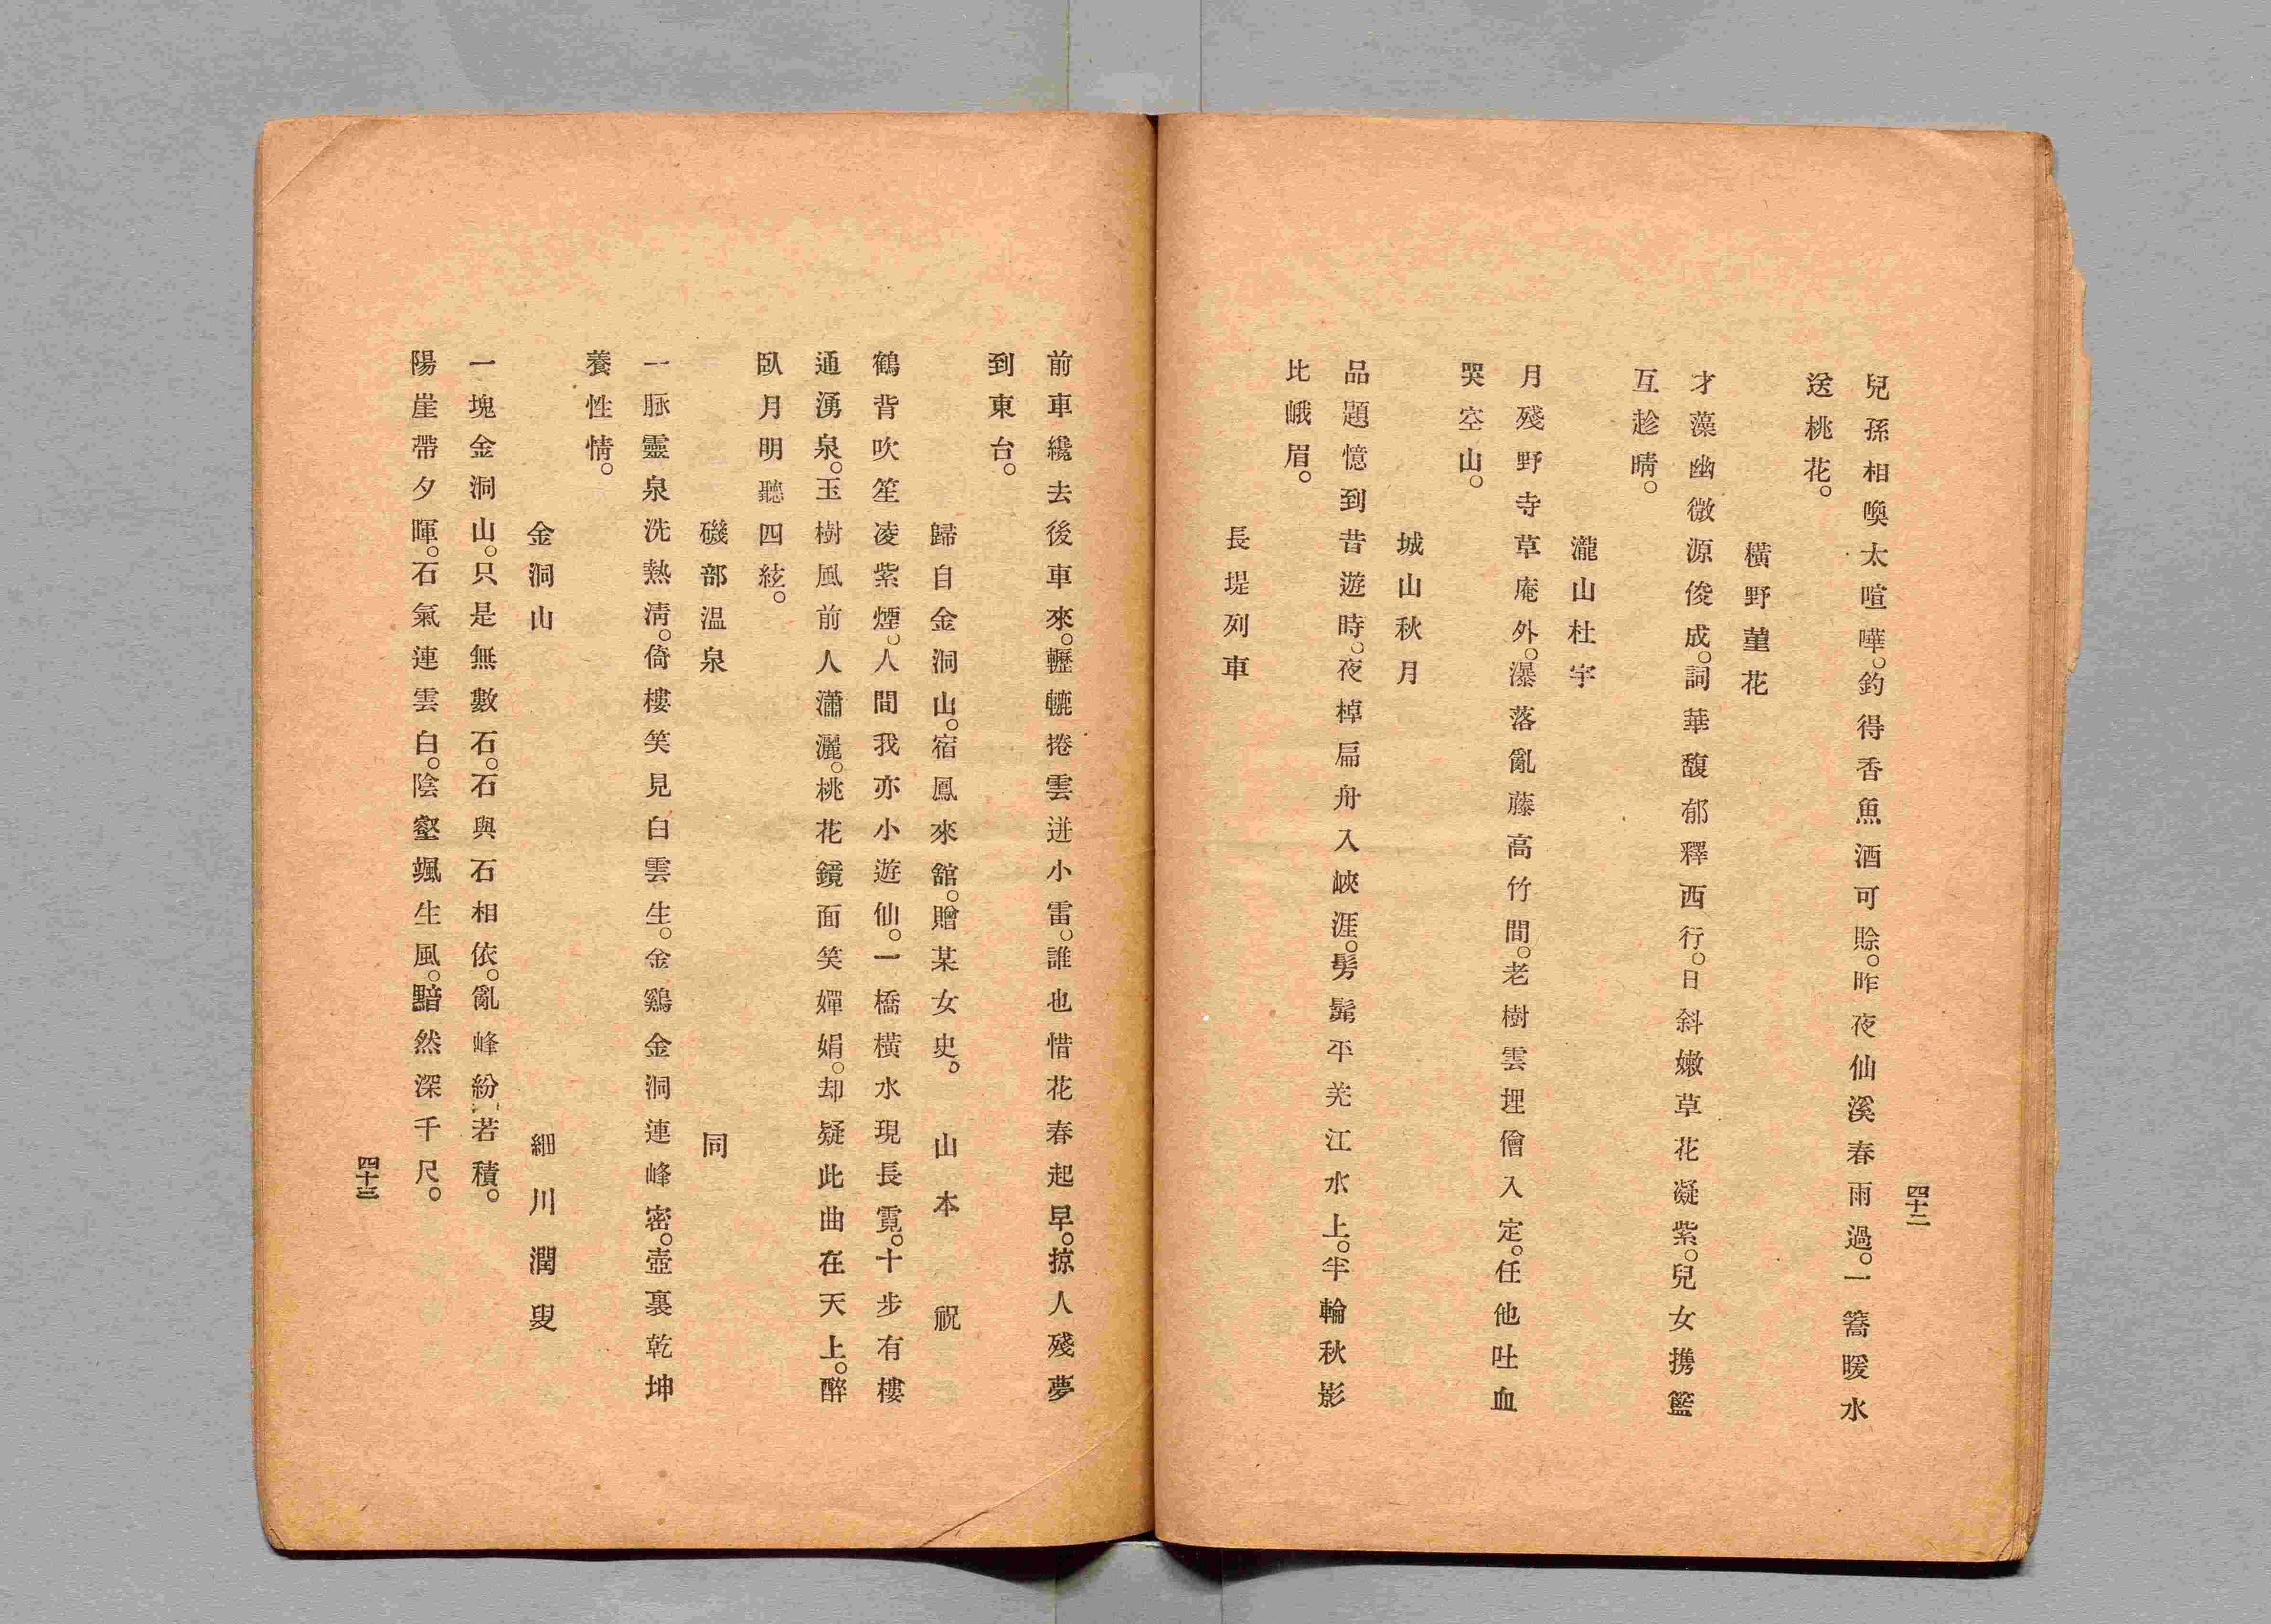 四十二
兒孫相喚太喧嘩。釣得香魚酒可賒。昨夜仙溪春雨過。一篙暖水
送桃花。
橫野菫花
才藻幽微源俊成。詞華馥郁釋西行。日斜嫩草花凝紫。兒女携籃
互趁晴。
瀧山杜宇
月殘野寺草庵外。瀑落亂藤高竹間。老樹雲埋僧入定。任他吐血
哭空山。
城山秋月
品題憶到昔遊時。夜棹扁舟入峽涯。髣髴平羌江水上。半輪秋影
比峨眉。
長堤列車
前車纔去後車來。轣轆捲雲迸小雷。誰也惜花春起早。掠人殘夢
到東台。
歸自金洞山。宿鳳來舘。贈某女史。 山本祝
鶴背吹笙凌紫煙。人間我亦小遊仙。一橋橫水現長霓。十步有樓
通湧泉。玉樹風前人瀟灑。桃花鏡面笑嬋娟。却疑此曲在天上。醉
臥月明聽四絃。
磯部温泉 同
一脈靈泉洗熱淸。倚樓笑見白雲生。金鷄金洞連峰密。壺裏乾坤
養性情。
金洞山 細川潤叟
一塊金洞山。只是無數石。石與石相依。亂峰紛若積。
陽崖帶夕暉。石氣連雲白。陰壑颯生風。黯然深千尺。
四十三